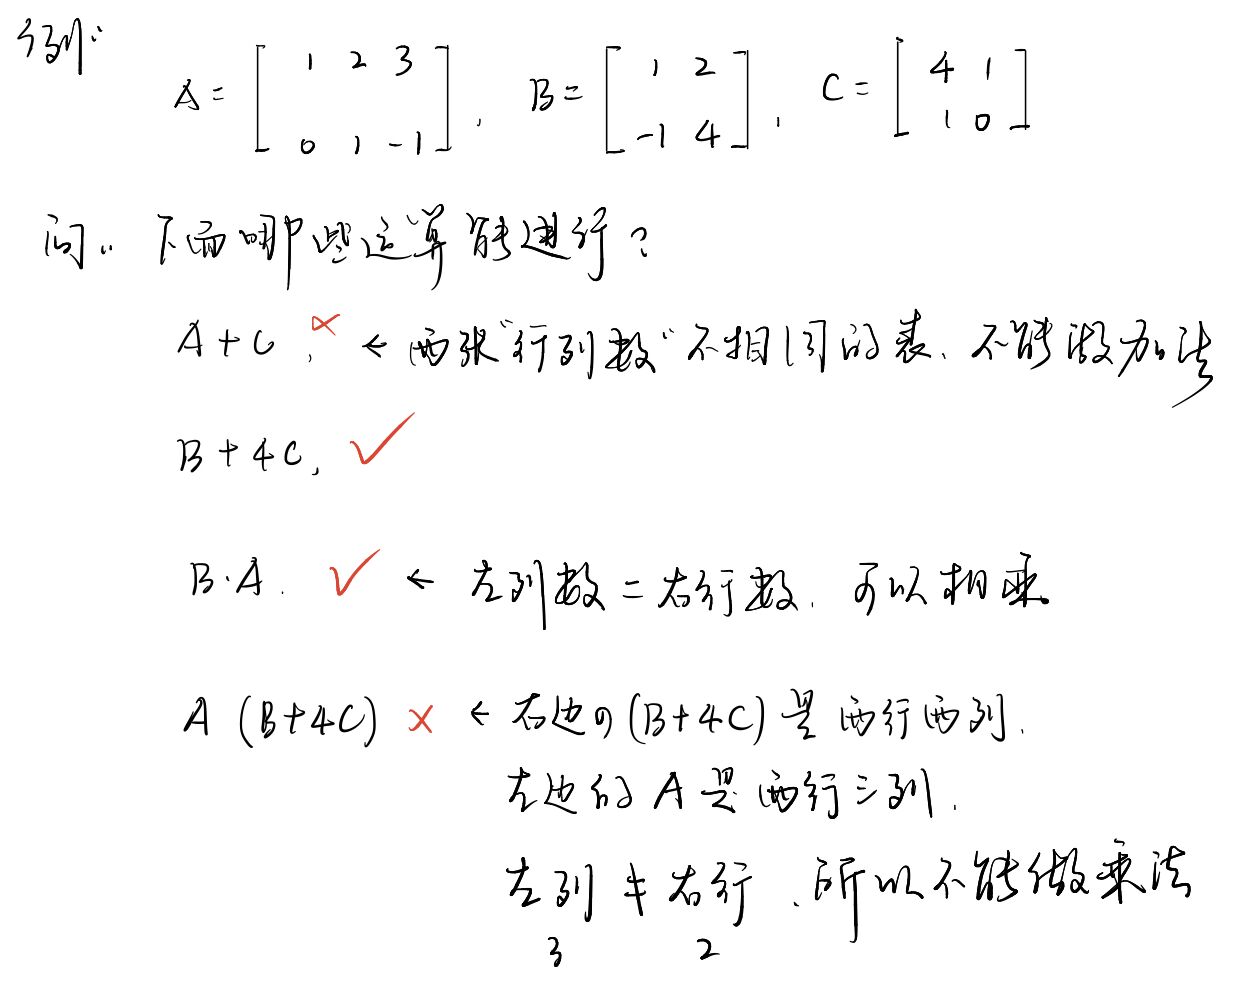 例:
A = [ 1 2 3
0 1 -1 ], B = [ 1 2
-1 4 ], C = [ 4 1
1 0 ]
问: 下面哪些运算能进行?
A+C, × ← 两张"行列数"不相同的表、不能做加法
B+4C, ✓
B·A. ✓ ← 左列数 = 右行数. 可以相乘.
A (B+4C) × ← 右边の(B+4C)是两行两列.
左边的A是两行三列.
左列 ≠ 右行、所以不能做乘法
3 2